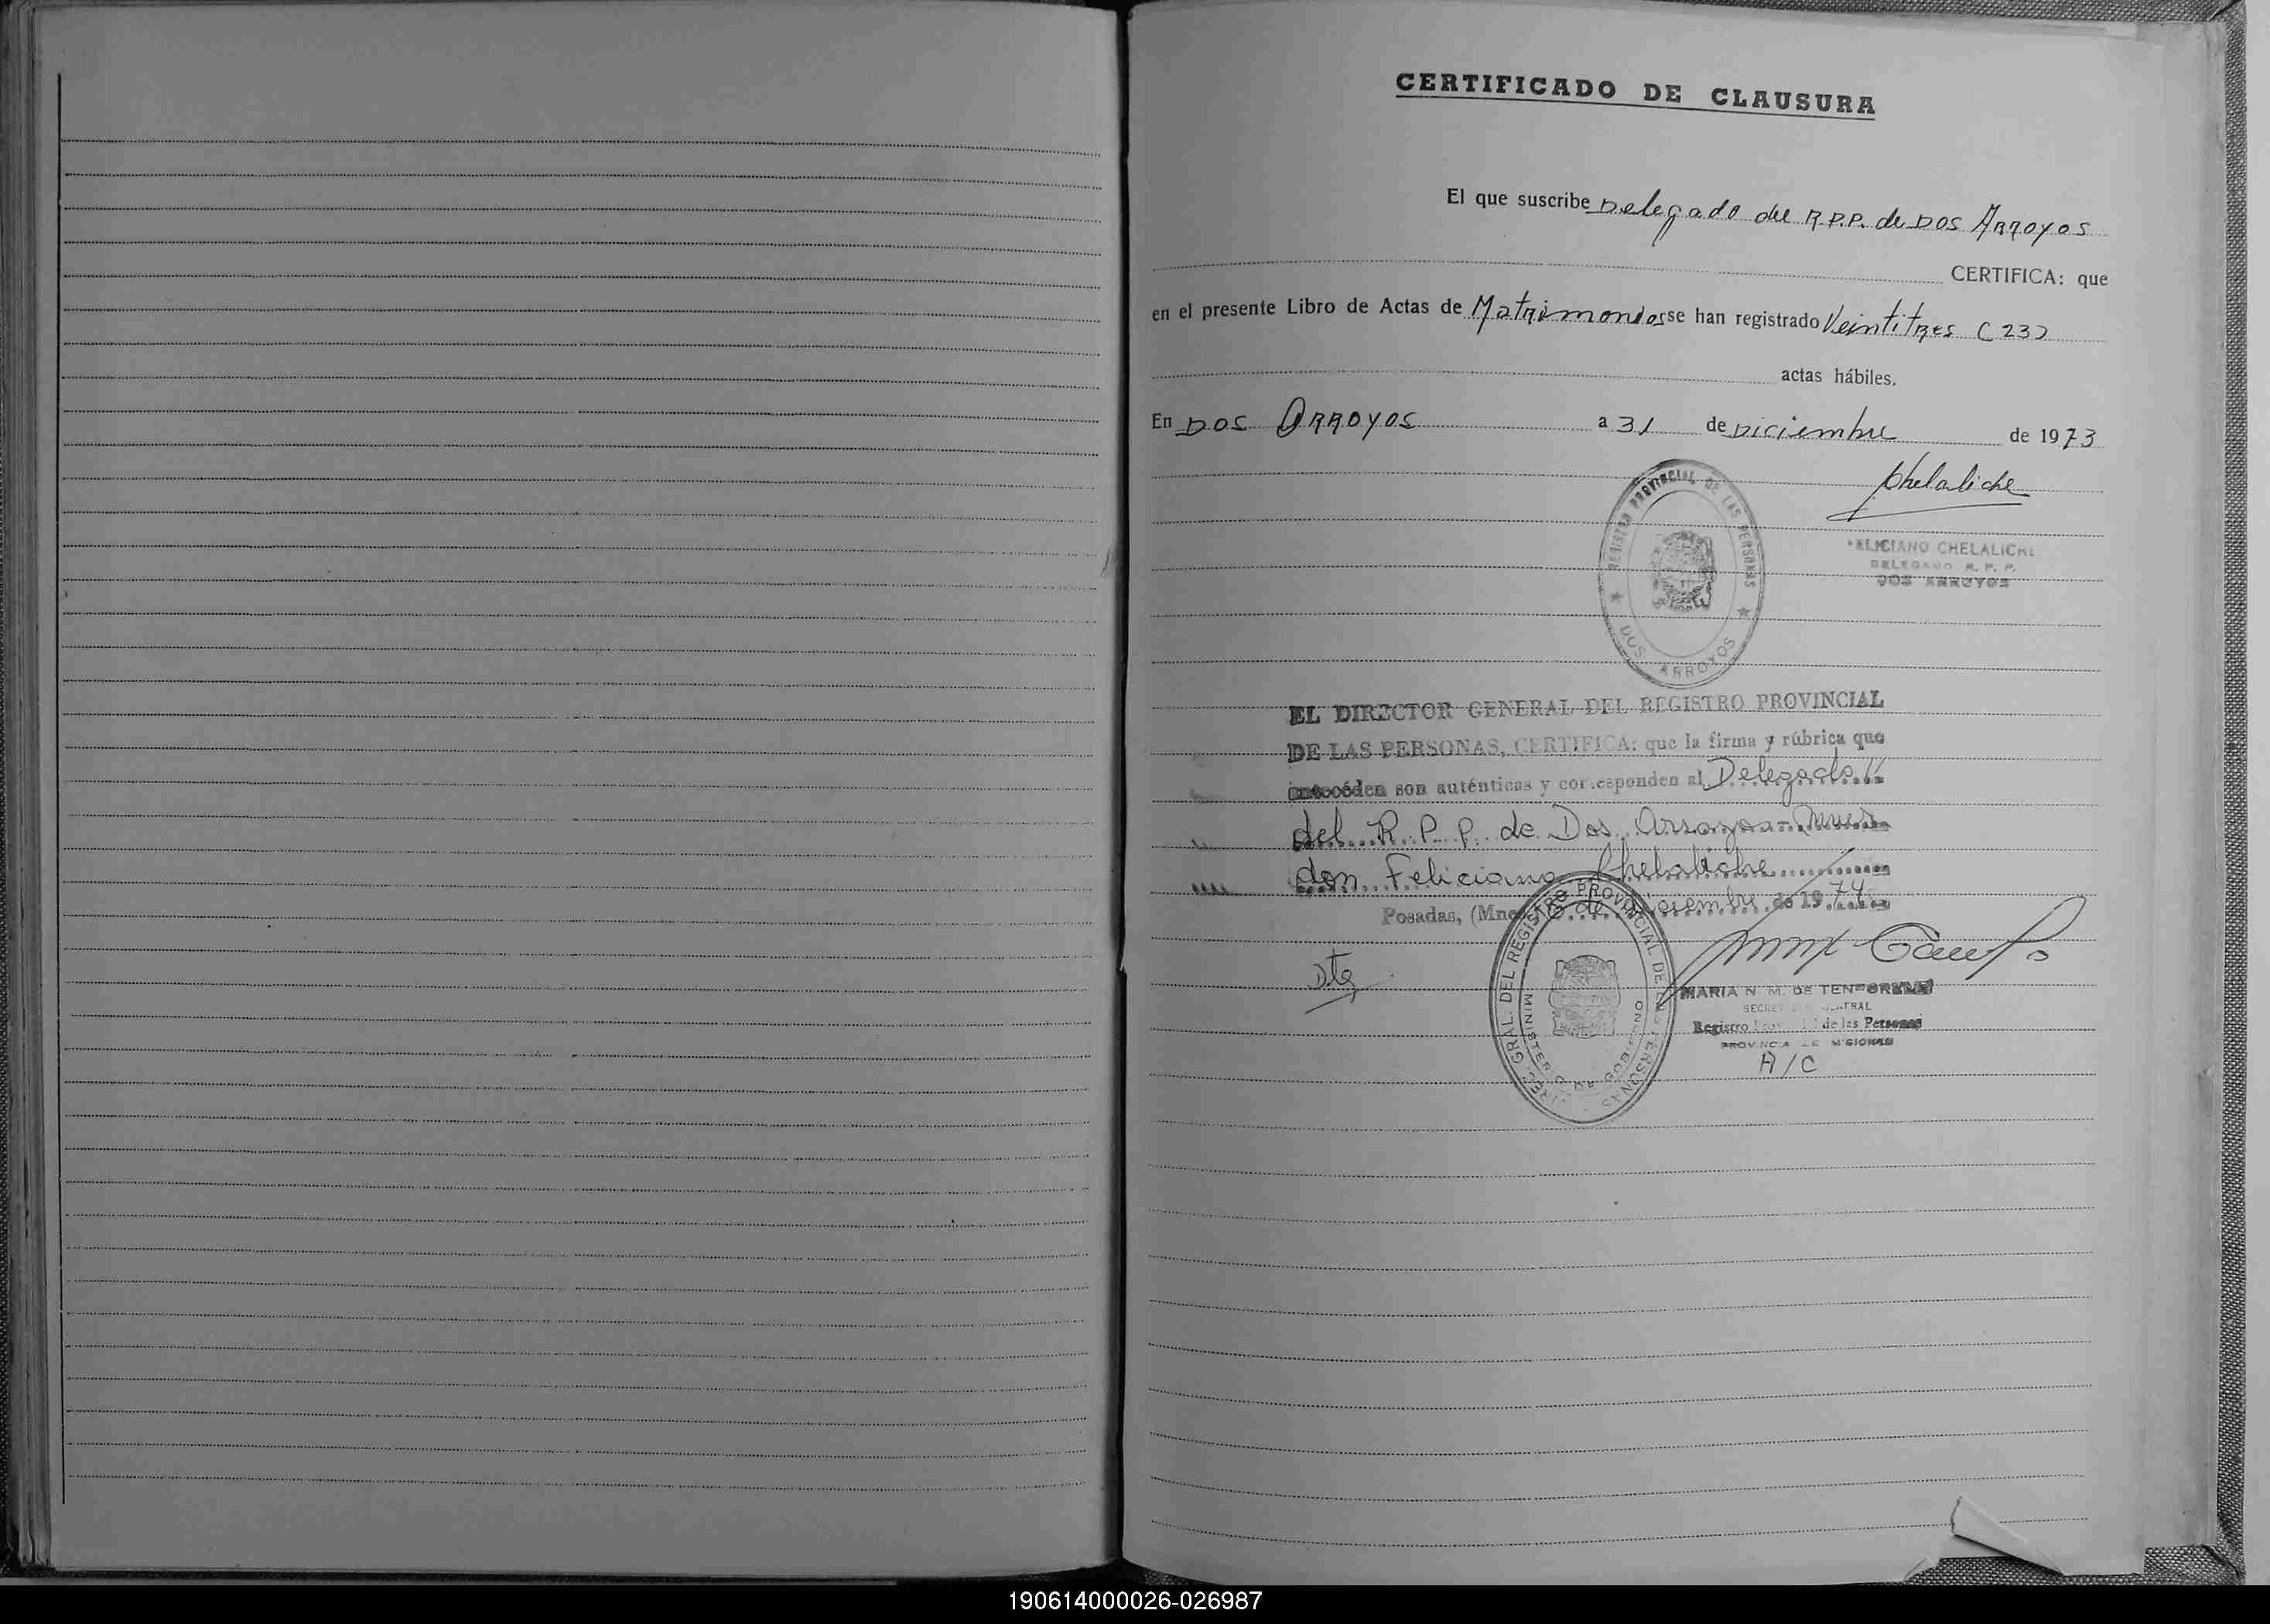 CERTIFICADO DE CLAUSURA
El que suscribe Delegado del R.P.P. de DOS ARROYOS
CERTIFICA: que
en el presente Libro de Actas de Matrimonios se han registrado Veintitres (23)
actas hábiles.
En DOS ARROYOS a 31 de Diciembre de 1973
Chelaliche
REGISTRO PROVINCIAL DE LAS PERSONAS
DOS ARROYOS
FELICIANO CHELALICHE
DELEGADO R. P. P.
DOS ARROYOS
EL DIRECTOR GENERAL DEL REGISTRO PROVINCIAL
DE LAS PERSONAS, CERTIFICA: que la firma y rúbrica que
anteceden son auténticas y corresponden al Delegado
del R. P. P. de Dos Arroyos
don Feliciano Chelaliche
Posadas, (Mnes) de 1974
DIREC. GRAL. DEL REGISTRO PROVINCIAL DE LAS PERSONAS
MINISTERIO DE GOBIERNO
MARIA N. M. DE
SECRETARIA GENERAL
Registro Provincial de las Personas
PROVINCIA DE MISIONES
A/C
190614000026-026987